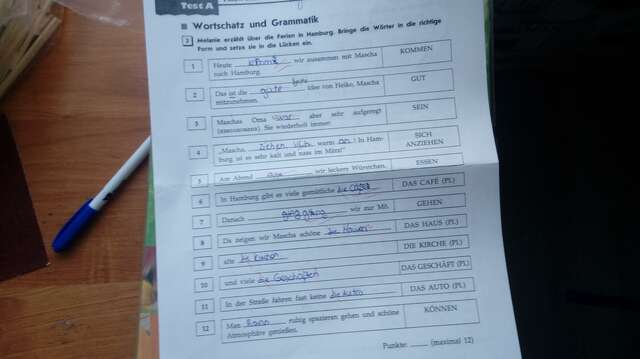 Test A
Wortschatz und Grammatik
3 Melanie erzählt über die Ferien in Hamburg. Bringe die Wörter in die richtige
Form und setze sie in die Lücken ein.
1 Heute wir zusammen mit Mascha KOMMEN
nach Hamburg.
2 Das ist die gute Idee von Heiko, Mascha GUT
mitzunehmen.
3 Maschas Oma war aber sehr aufgeregt SEIN
Sie wiederholt immer:
4 „Mascha, ziehen warm an! In Ham- SICH
burg ist es sehr kalt und nass im März!" ANZIEHEN
5 Am Abend wir leckere Würstchen. ESSEN
6 In Hamburg gibt es viele gemütliche die Cafés DAS CAFÉ (PL)
7 Danach ging wir zur Mö. GEHEN
8 Da zeigen wir Mascha schöne DAS HAUS (PL)
9 alte DIE KIRCHE (PL)
10 und viele die Geschäften DAS GESCHÄFT (PL)
11 In der Straße fahren fast keine die Auto DAS AUTO (PL)
12 Man kann ruhig spazieren gehen und schöne KÖNNEN
Atmosphäre genießen.
Punkte: (maximal 12)